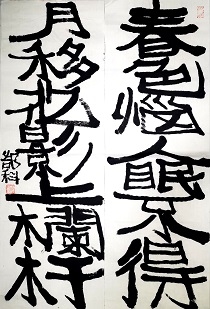 春色恼眠不得
月移花影上欄杆
郜科